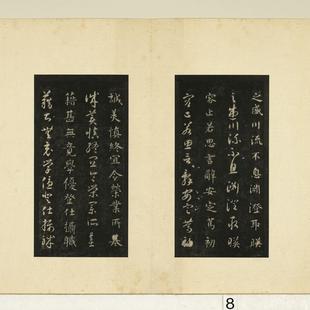 之盛川流不息淵澄取暎
之盛川流不息淵澄取暎
容止若思言辭安定篤初
容止若思言辭安定篤初
誠美慎終宜令榮業所基
誠美慎終宜令榮業所基
籍甚無竟學優登仕攝職
籍甚無竟學優登仕攝職
8